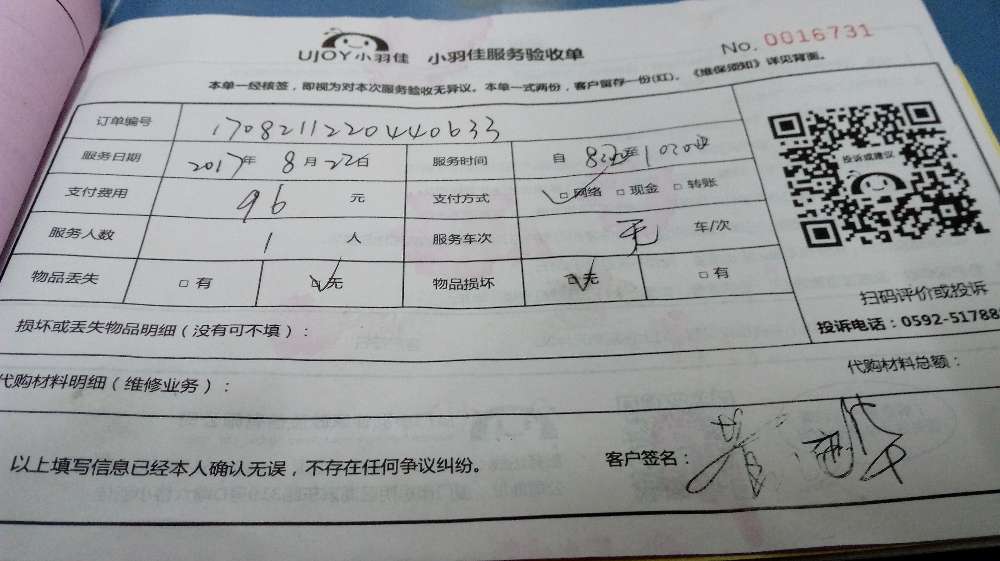 UJOY小羽佳 小羽佳服务验收单 No. 0016731
本单一经核签，即视为对本次服务验收无异议。本单一式两份，客户留存一份(红)。《维保须知》详见背面。
订单编号 1708211220440633
服务日期 2017年 8月 22日 服务时间 自
支付费用 96 元 支付方式 □网络 □现金 □转账
服务人数 1 人 服务车次 无 车/次
物品丢失 □有 □无 物品损坏 □无 □有
投诉或建议
扫码评价或投诉
投诉电话：0592-51788
损坏或丢失物品明细（没有可不填）：
代购材料明细（维修业务）： 代购材料总额：
以上填写信息已经本人确认无误，不存在任何争议纠纷。 客户签名：